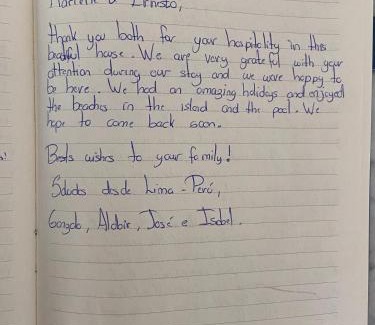 & Ernesto,
Thank you both for your hospitality in this
beautiful house. We are very grateful with your
attention during our stay and we were happy to
be here. We had an amazing holidays and enjoyed
the beaches in the island and the pool. We
hope to come back soon.
Bests wishes to your family!
Saludos desde Lima - Perú,
José e Isabel.